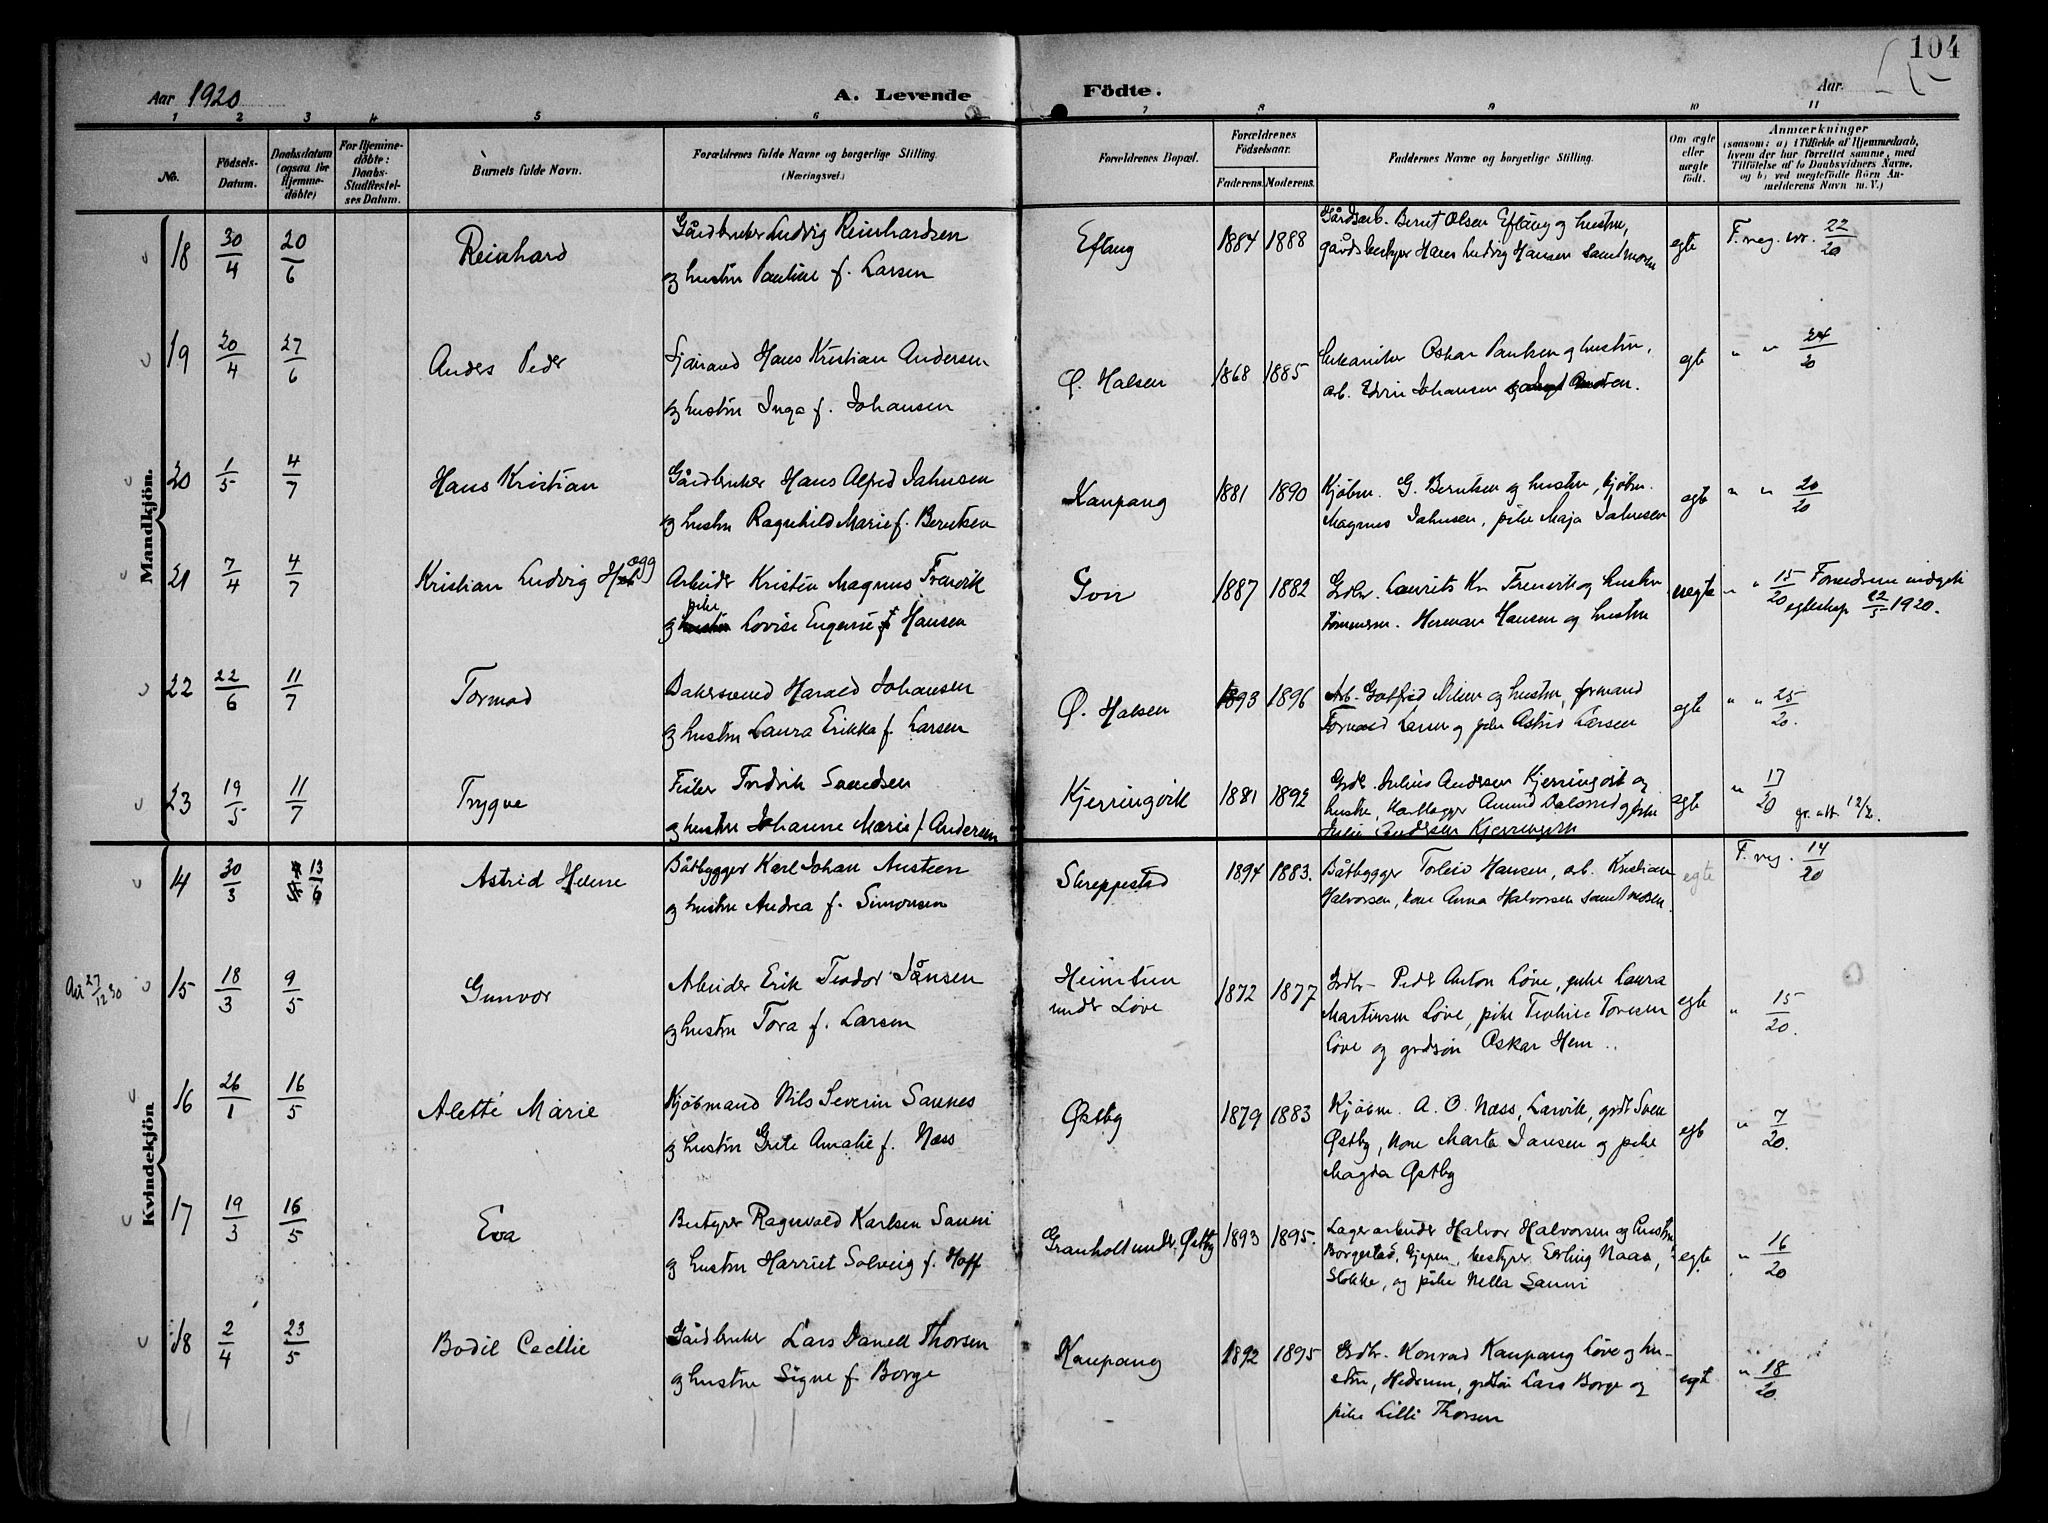 104
Aar 1920 A. Levende Födte. Aar.
1 2 3 4 5 6 7 8 9 10 11
No. Födsels-Datum. Daabsdatum (ogsaa for Hjemmedöbte) For Hjemmedöbte: Daabs-Stadfæstelses Datum. Barnets fulde Navn. Forældrenes fulde Navne og borgerlige Stilling. (Næringsvei.) Forældrenes Bopæl. Forældrenes Födselsaar. Faderens. Moderens. Faddernes Navne og borgerlige Stilling. Om ægte eller uægte födt. Anmærkninger (saasom: a) i Tilfælde af Hjemmedaab, hvem der har forrettet samme, med Tilföielse af to Daabsvidners Navne, og b) ved uægtefödte Börn Anmelderens Navn m. V.)
Mandkjön.
18 30/4 20/6 Reinhard Gårdbruker Ludvig Reinhardsen Eftang 1884 1888 Gårdsarb. Bernt Olsen Eftang og hustru, egte F. reg. nr. 22/20
og hustru Pauline f. Larsen gårdsbestyrer Hans Ludvig Hansen samt moren
19 20/4 27/6 Anders Peder Sjømand Hans Kristian Andersen Ø. Halsen 1868 1885 Mekaniker Oskar Paulsen og hustru, egte " " 24/20
og hustru Inga f. Johansen arb. Edvin Johansen
20 1/5 4/7 Hans Kristian Gårdbruker Hans Alfred Jahnsen Kaupang 1881 1890 Kjøbm. G. Berntsen og hustru, kjøbm. egte " " 20/20
og hustru Ragnhild Marie f. Berntsen Magnus Jahnsen, pike Maja Jahnsen
21 7/4 4/7 Kristian Ludvig Hegg Arbeider Kristen Magnus Fremvik Gon 1887 1882 Grdbr. Laurits Kr. Fremvik og hustru uegte " " 15/20 Forældrene indgik
og pike Lovise Eugenie f Hansen Tømmerm. Herman Hansen og hustru egteskap 22/5 1920.
22 22/6 11/7 Tormod Bakersvend Harald Johansen Ø. Halsen 1893 1896 Arb. Gotfred Nilsen og hustru, formand egte " " 25/20.
og hustru Laura Erikka f. Larsen Larsen og pike Astrid Larsen
23 19/5 11/7 Trygve Fisker Fredrik Svendsen Kjerringvik 1881 1892 Grdbr. Julius Andersen Kjerringvik og egte " 17/20
og hustru Johanne Marie f. Andersen hustru, Amund Dalsrud og pike gr. att. 12/2.
Julie Andersen Kjerringvik
Kvindekjön
14 30/3 13/6 Astrid Helene Båtbygger Karl Johan Austeen Skreppestad 1894 1883. Båtbygger Torleiv Hansen, arb. Kristian egte F. reg. 14/20
og hustru Andrea f. Simonsen Halvorsen, kone Anna Halvorsen samt moren.
27/12 30 15 18/3 9/5 Gunvor Arbeider Erik Teodor Jånsen Heimtun 1872 1877 Grdbr Peder Anton Løve, pike Laura egte " 15/20.
og hustru Tora f. Larsen under Løve Martinsen Løve, pike Toresen
Løve og grdsøn Oskar Hem
16 26/1 16/5 Alette Marie Kjøbmand Nils Severin Sannes Østby 1879 1883 Kjøbm. A. O. Næss, Larvik, grdbr Sven egte " 7/20.
og hustru Grete Amalie f. Næss Østby, kone Marta Jansen og pike
Magda Østby
17 19/3 16/5 Eva Bestyrer Ragnvald Karlsen Sanni Granholt under Østby 1893 1895. Lagerarbeider Halvor Halvorsen og hustru egte " 16/20
og hustru Harriet Solveig f. Hoff Borgestad, Gjerpen, bestyrer Erling Naas,
Stokke, og pike Nella Sanni
18 2/4 23/5 Bodil Cecilie Gårdbruker Lars Daniel Thorsen Kaupang 1892 1895 Grdbr. Konrad Kaupang Løve og hu- egte " 18/20.
og hustru Signe f. Borge stru, Hedrum, grdsøn Lars Borge og
pike Lilli Thorsen